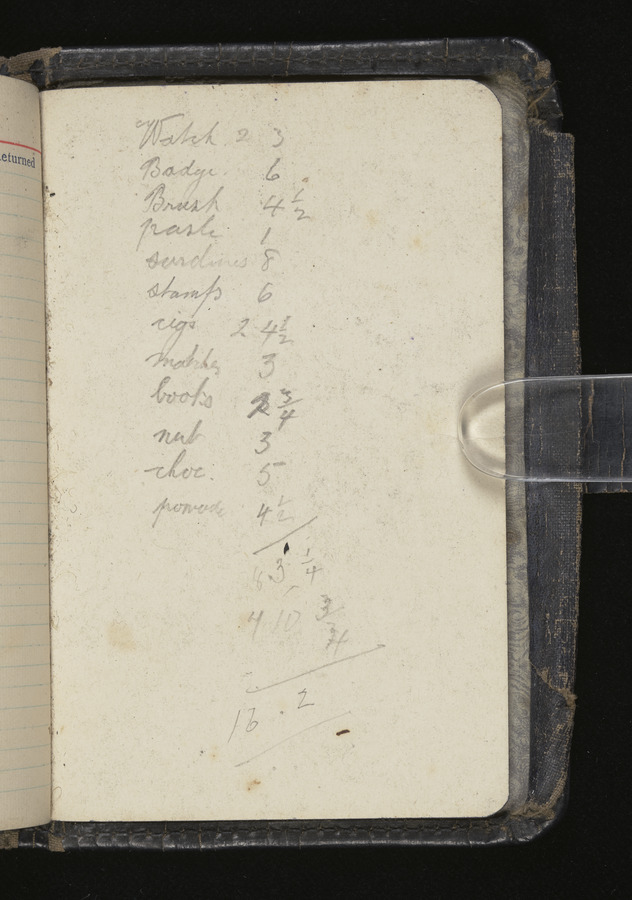 eturned
Watch 2 3
Badge. 6
Brush 4 1/2
paste 1
sardines 8
stamps 6
cigs 2 4 1/2
matches 3
books 2 3/4
nut 3
choc. 5
pomade 4 1/2
3 1/4
4 10 3/4
2